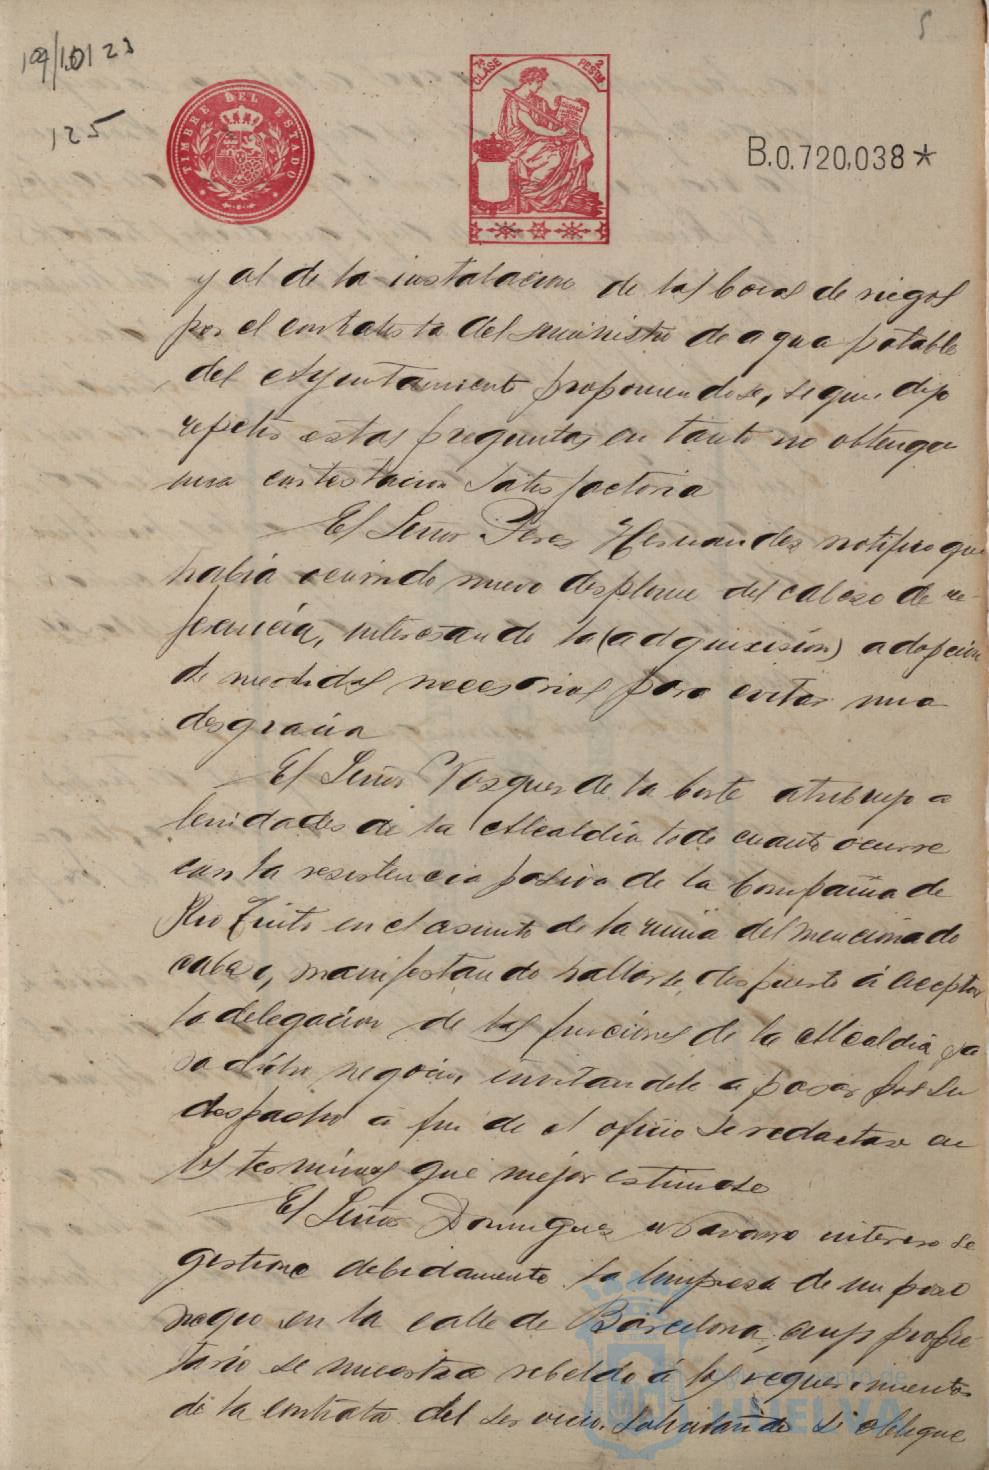 5
109/10/23
125
TIMBRE DEL ESTADO
7ª CLASE 2 PESTAS
B.0.720,038*
y al de la instalacion de las bocas de riegos
por el contratista del suministro de agua potable
del Ayuntamiento proponiendose, segun dijo
repetir estas preguntas en tanto no obtenga
una contestacion satisfactoria
El Señor Perez Hernandez notifico que
habia ocurrido nuevo desplome del cabezo de re-
ferencia, interesando la (adquisición) adopcion
de medidas necesarias para evitar una
desgracia
El Señor Vazquez de la Corte atribuyo a
lenidades de la Alcaldia todo cuanto ocurre
con la resistencia pasiva de la Compañia de
Rio Tinto en el asunto de la ruina del mencionado
cabezo, manifestando hallarse dispuesto á aceptar
la delegacion de las funciones de la Alcaldia pa
ra dicho negocio invitandole a pasar por su
despacho a fin de el oficio se redactase en
los terminos que mejor estimase
El Señor Dominguez Navarro intereso se
gestione debidamente la limpieza de un pozo
negro en la calle de Barcelona, cuyo propie-
tario se muestra rebelde á los requerimientos
de la contrata del servicio. Solicitando se obligue
Ayuntamiento de
HUELVA